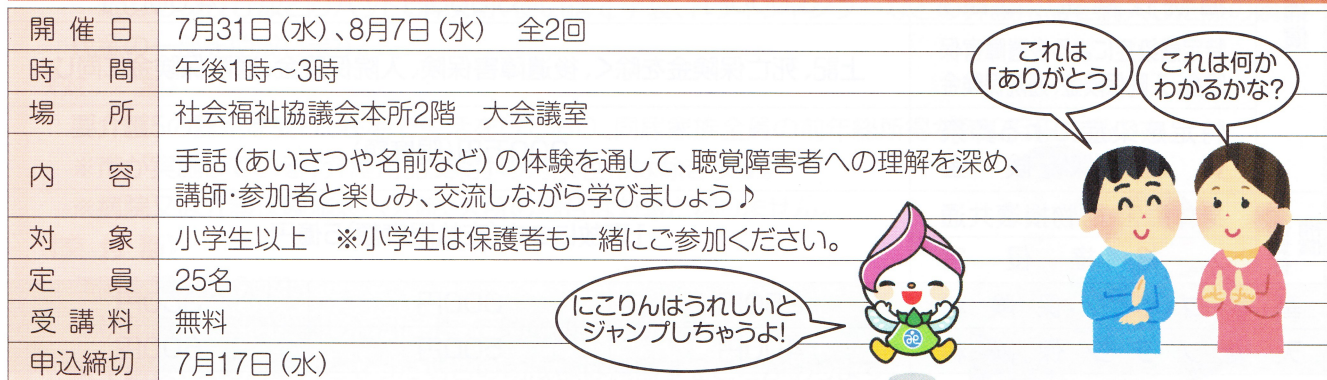 開催日 7月31日(水)、8月7日(水) 全2回
時間 午後1時～3時
場所 社会福祉協議会本所2階 大会議室
内容 手話(あいさつや名前など)の体験を通して、聴覚障害者への理解を深め、
講師・参加者と楽しみ、交流しながら学びましょう♪
対象 小学生以上 ※小学生は保護者も一緒にご参加ください。
定員 25名
受講料 無料
申込締切 7月17日(水)
これは
「ありがとう」
これは何か
わかるかな?
にこりんはうれしいと
ジャンプしちゃうよ!